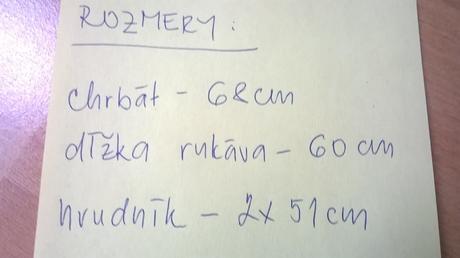 ROZMERY:
chrbát - 68cm
dĺžka rukáva - 60 cm
hrudník - 2x 51 cm